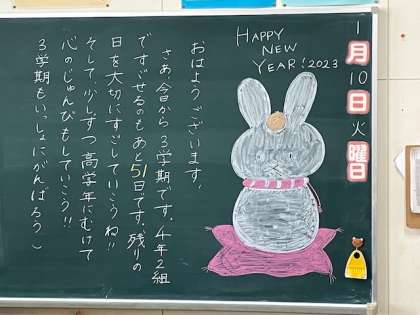 1月10日火曜日
HAPPY
NEW
YEAR! 2023
おはようございます。
さあ、今日から3学期です。4年2組
ですごせるのもあと51日です。残りの
日を大切にすごしていこうね!!
そして、少しずつ高学年にむけて
心のじゅんびもしていこう!!
3学期もいっしょにがんばろう